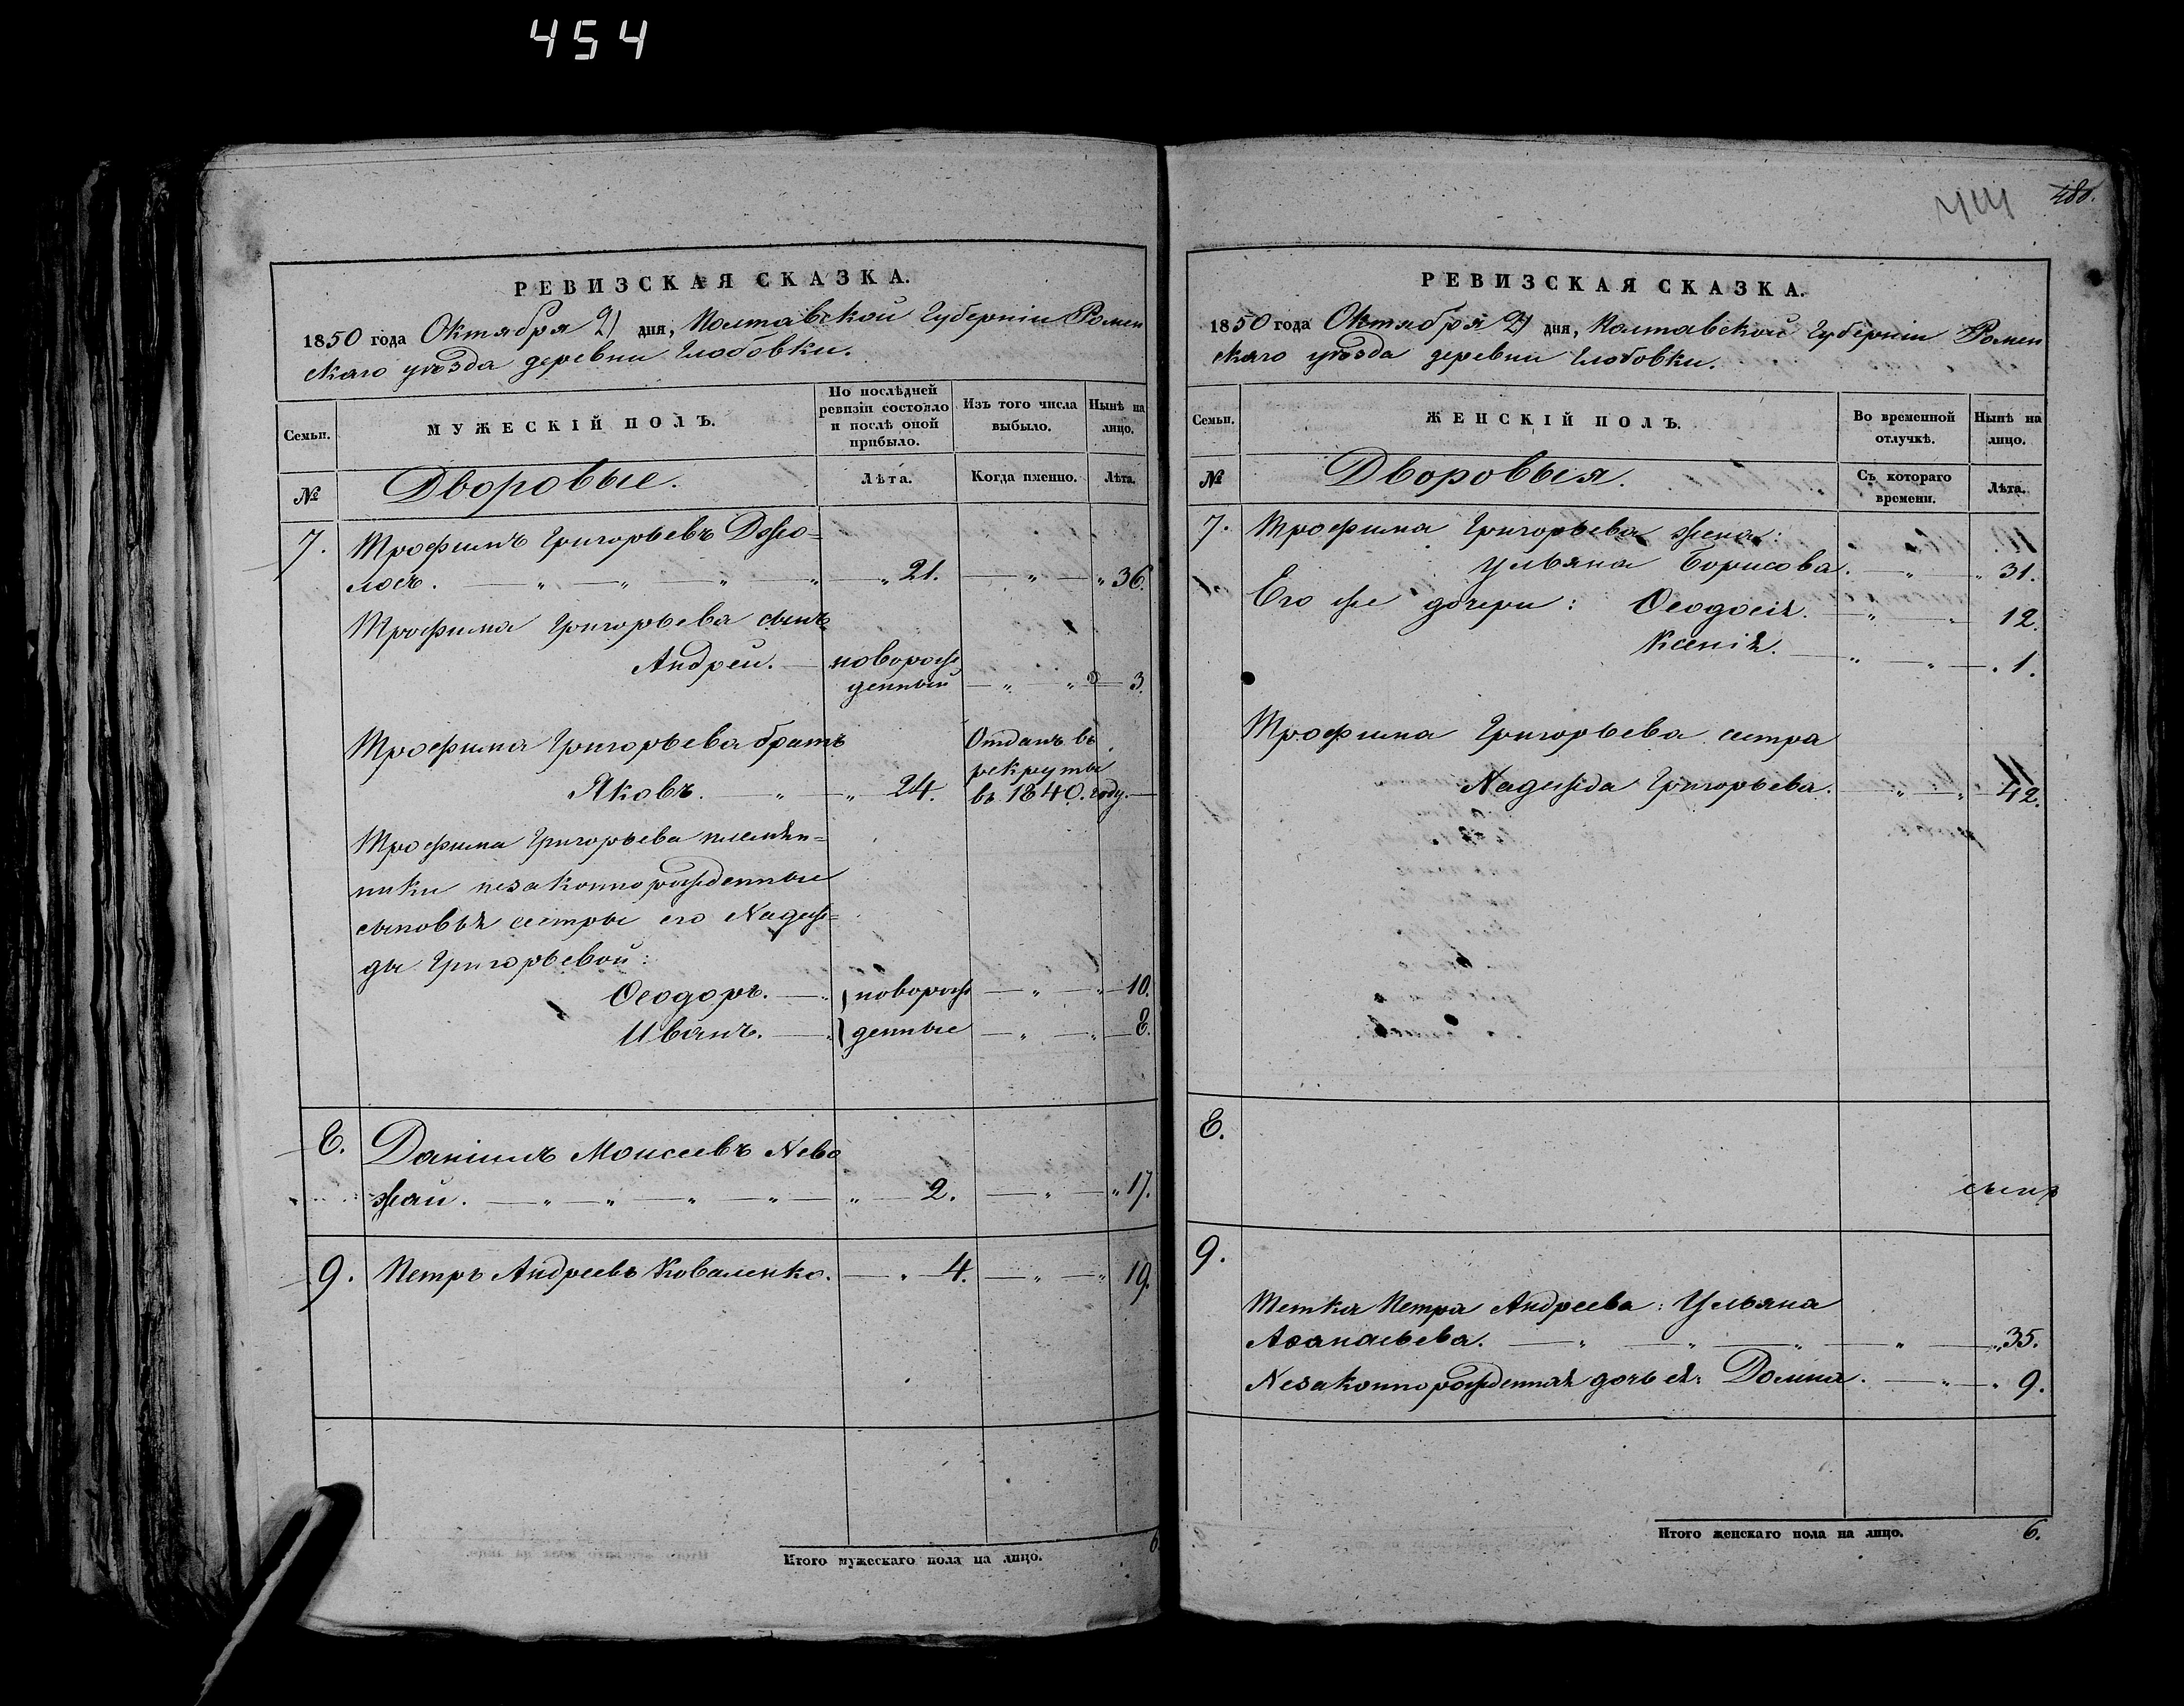 454
480.
РЕВИЗСКАЯ СКАЗКА.
1850 года Октября 21 дня, Полтавской Губерніи Ромен
скаго уѣзда деревни Глобовки.
Семьи.
МУЖЕСКІЙ ПОЛЪ.
По послѣдней ревизіи состояло и послѣ оной прибыло.
Изъ того числа выбыло.
Нынѣ на лицо.
№
Дворовые.
Лѣта.
Когда именно.
Лѣта.
7. Трофимъ Григорьевъ
21. 36.
Трофима Григорьева сынъ
Андрей. новорож
денный 3.
Трофима Григорьева братъ
Отданъ въ
рекруты
Яковъ. 24. въ 1840. году.
Трофима Григорьева племян=
ники незаконнорожденные
сыновья сестры его Надеж=
ды Григорьевой:
Ѳеодоръ. новорож 10.
Иванъ. денные 8.
8. Даніилъ Моисеевъ Нево
жай. 2. 17.
9. Петръ Андреевъ Коваленко. 4. 19.
Итого мужескаго пола на лицо. 6.
РЕВИЗСКАЯ СКАЗКА.
1850 года Октября 21 дня, Полтавской Губерніи Ромен
скаго уѣзда деревни Глобовки.
Семьи.
ЖЕНСКІЙ ПОЛЪ.
Во временной отлучкѣ.
Нынѣ на лицо.
№
Дворовыя.
Съ котораго времени.
Лѣта.
7. Трофима Григорьева жена:
Ульяна Борисова. 31.
Его же дочери: Ѳеодосія. 12.
Ксенія. 1.
Трофима Григорьева сестра
Надежда Григорьева. 42.
8.
9.
Тетка Петра Андреева: Ульяна
Аѳанасьева. 35.
Незаконнорожденная дочь ея: Домна. 9.
Итого женскаго пола на лицо. 6.